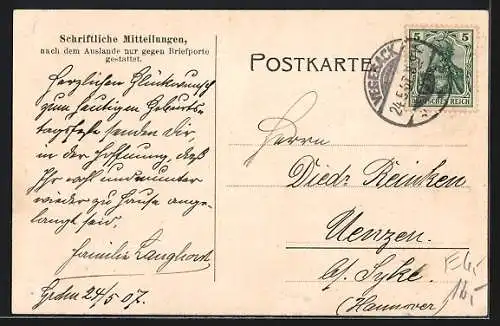 Schriftliche Mitteilungen,
nach dem Auslande nur gegen Briefporto
gestattet.
Herzlichen Glückwunsch
zum heutigen Geburts-
tagsfeste senden Dir
in der Hoffnung, daß
Ihr wohl und munter
wieder zu Hause ange-
langt seid,
Familie Langhorst
24/5 07.
POSTKARTE
VEGESACK
24.5.07
5 5
DEUTSCHES REICH
Herrn
Diedr. Reinken
Uenzen.
b/ Syke.
(Hannover)